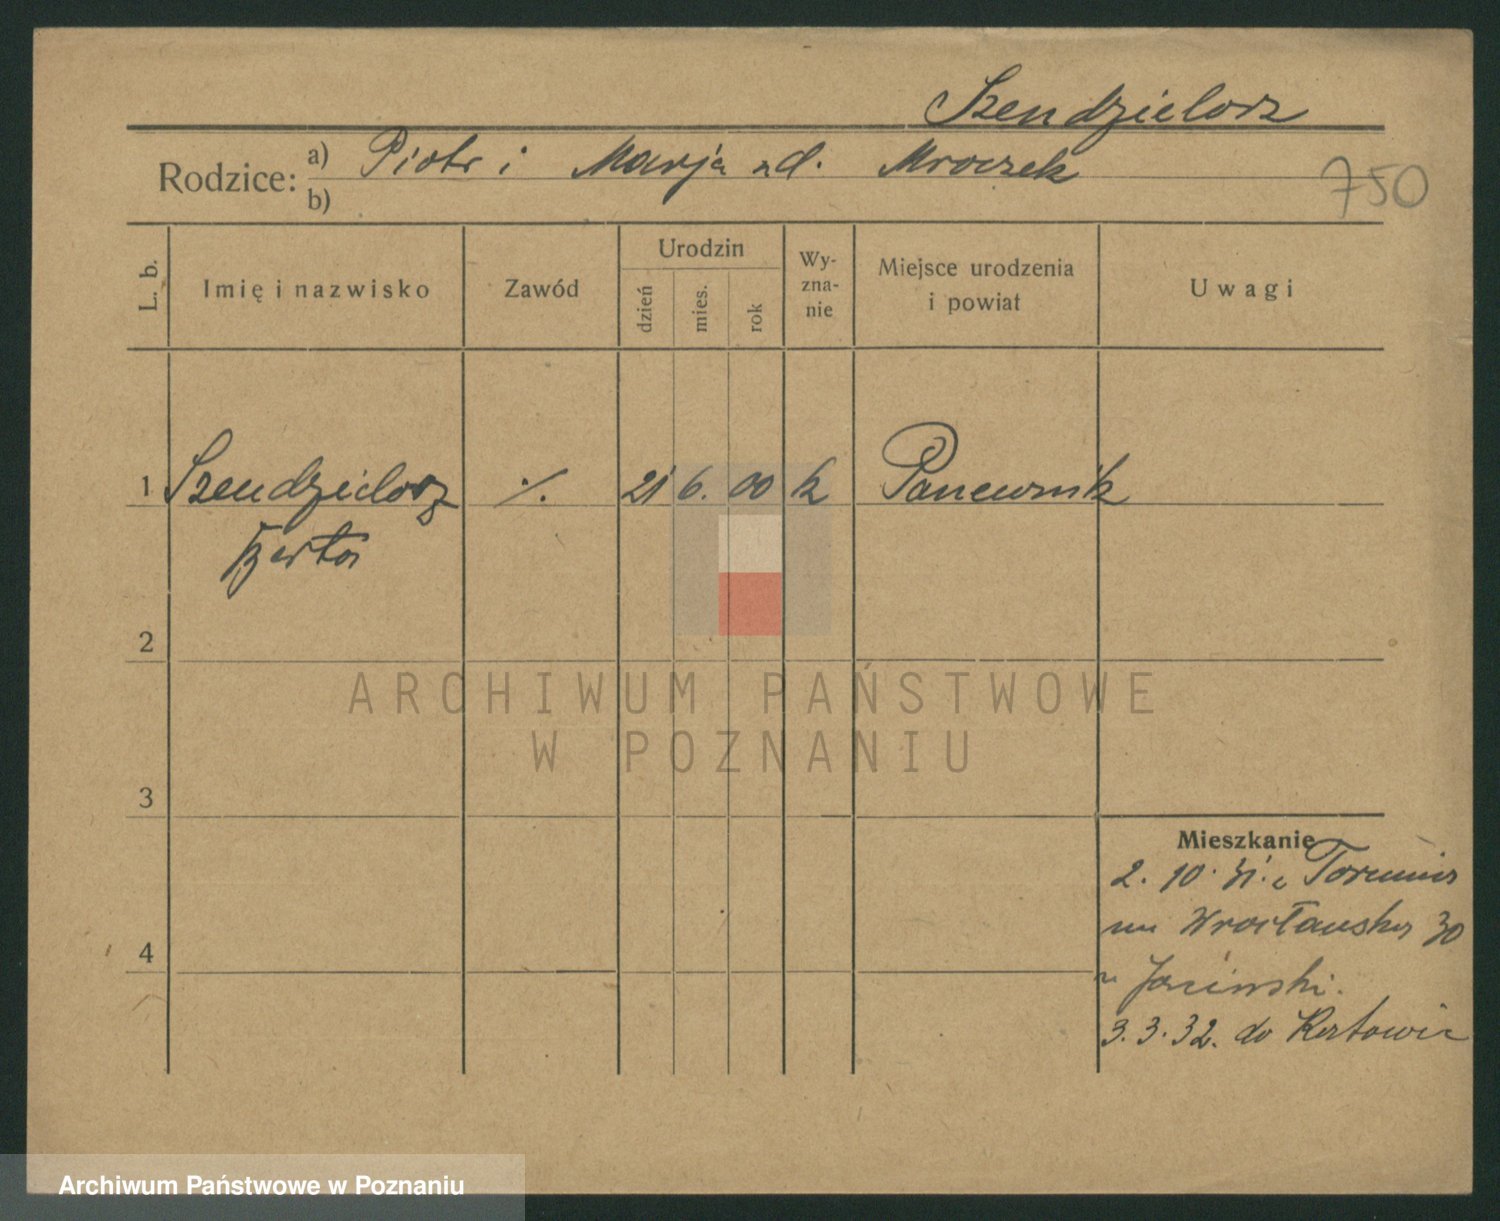 Szendzielorz
Rodzice: a) Piotr i Marja zd. Mroczek
b)
750
L. b.
Imię i nazwisko
Zawód
Urodzin
dzień
mies.
rok
Wy-
zna-
nie
Miejsce urodzenia
i powiat
Uwagi
1 Szendzielorz ·/. 21 6. 00 k Panewnik
Berta
2
ARCHIWUM PAŃSTWOWE
W POZNANIU
3
Mieszkanie
2. 10. 31. z Torunia
Wrocławska 30
Jasiński.
4
3. 3. 32. do Katowic
Archiwum Państwowe w Poznaniu